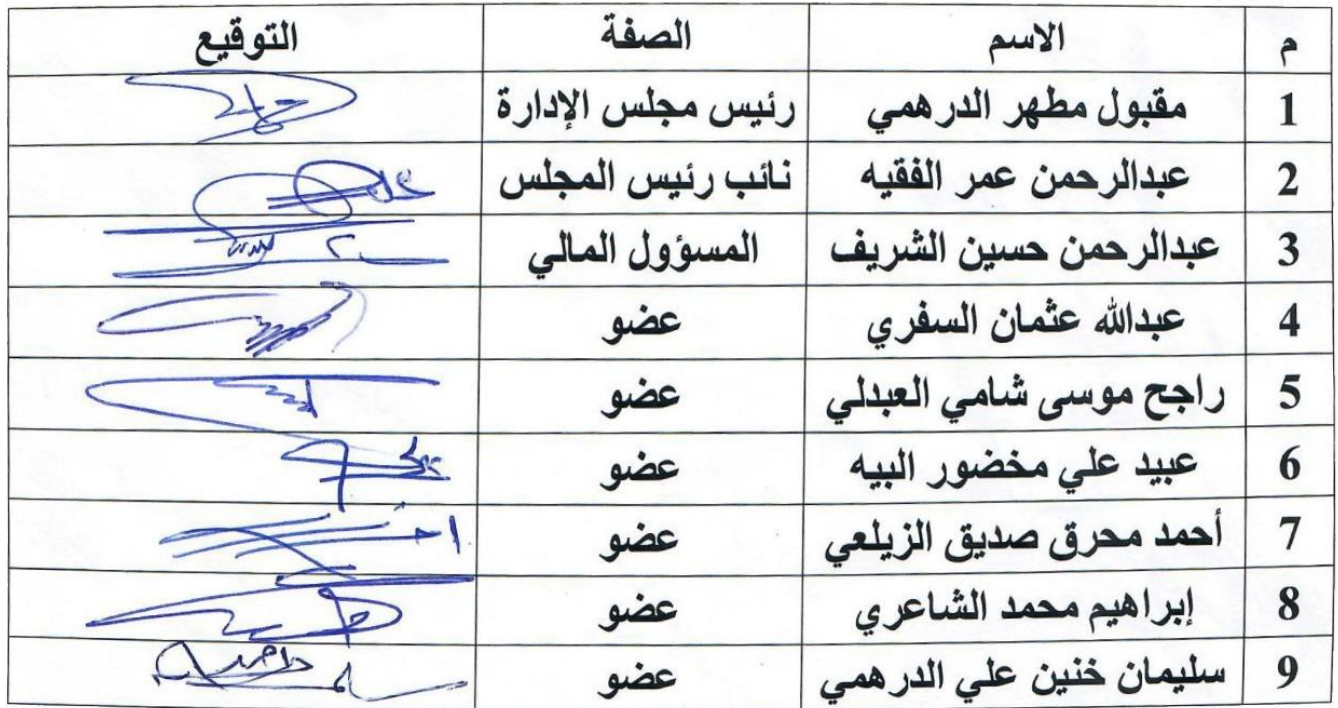 م الاسم الصفة التوقيع
1 مقبول مطهر الدرهمي رئيس مجلس الإدارة
2 عبدالرحمن عمر الفقيه نائب رئيس المجلس
3 عبدالرحمن حسين الشريف المسؤول المالي
4 عبدالله عثمان السفري عضو
5 راجح موسى شامي العبدلي عضو
6 عبيد علي مخضور البيه عضو
7 أحمد محرق صديق الزيلعي عضو
8 إبراهيم محمد الشاعري عضو
9 سليمان خنين علي الدرهمي عضو